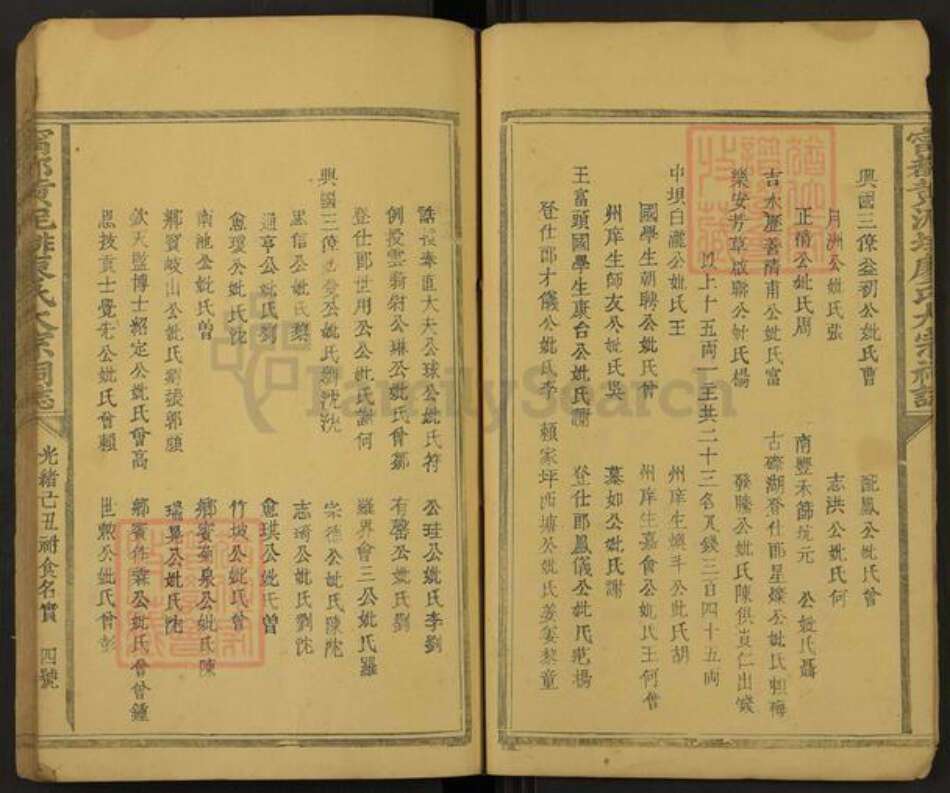 興國三僚益初公妣氏曹 配鳳公妣氏曾
月洲公妣氏張 志洪公妣氏何
正積公妣氏周 南豐禾篩坑元 公妣氏聶
吉水盧善清甫公妣氏富 古磜湖登仕郎星燦公妣氏賴梅
樂安芳草啟聯公妣氏楊 發勝公妣氏陳供貞仁出錢
以上十五兩一主共二十三名其錢三百四十五兩
中坝白瀧公妣氏王 州庠生 公妣氏胡
國學生朝聘公妣氏曾 州庠生嘉會公妣氏王何曾
州庠生師友公妣氏吳 慕如公妣氏謝
王富頭國學生康台公妣氏謝 登仕郎鳳儀公妣氏范楊
登仕郎才儀公妣氏李 賴家坪西塘公妣氏姜宴黎童
誥授奉直大夫公球公妣氏符 公珪公妣氏李劉
例授雲 公妣氏曾鄒 有馨公妣氏劉
登仕郎世用公公妣氏謝何 羅界會三公妣氏羅
興國三僚 公妣氏 沈 宗德公妣氏陳沱
思信公妣氏黎 志琦公妣氏沈
通亨公妣氏劉 愈珙公妣氏曾
愈瓊公妣氏沈 竹坡公妣氏曾
南池公妣氏曾 鄉賓 泉公妣氏陳
鄉賓岐山公妣氏劉張郭賴 瑞昇公妣氏沈
欽天監博士紹定公妣氏曾高 鄉賓作霖公妣氏曾曾鍾
恩拔貢士覺先公妣氏曾賴 世 公妣氏曾彭
光緒己丑祔食名實 四號
FamilySearch